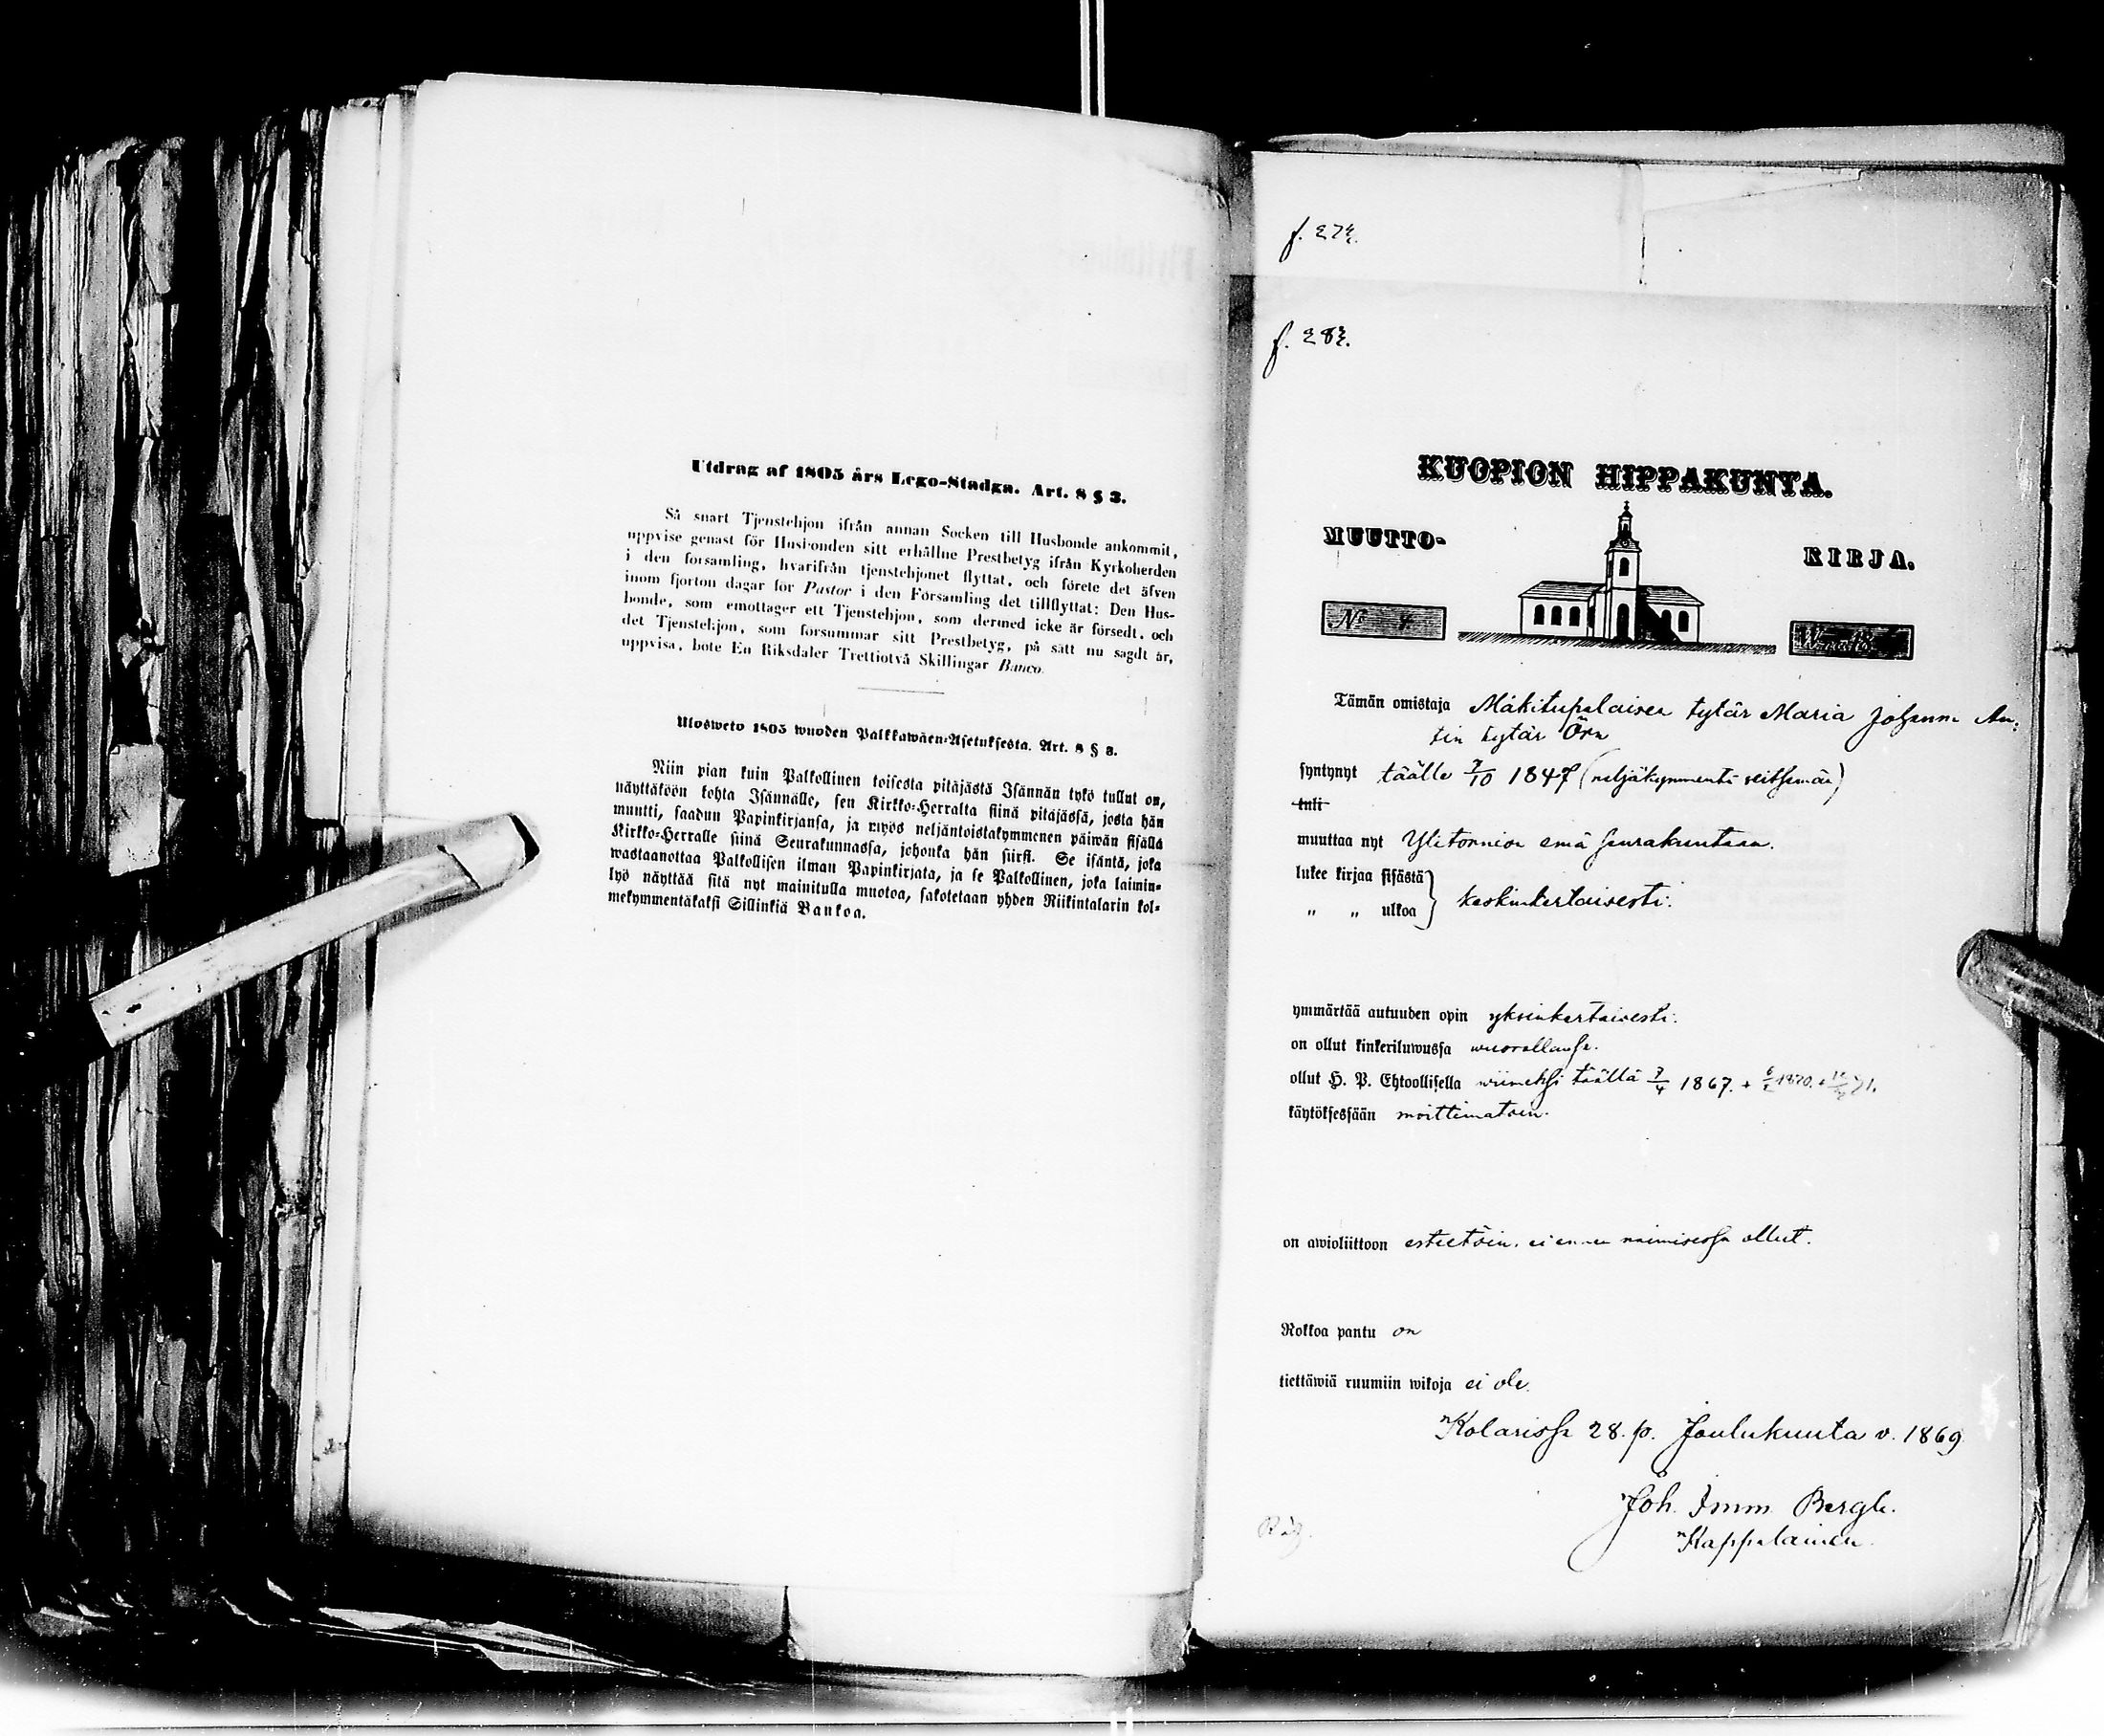 Utdrag af 1805 års Lego-Stadga. Art. 8 § 3.
Så snart Tjenstehjon ifrån annan Socken till Husbonde ankommit,
uppvise genast för Husbonden sitt erhållne Prestbetyg ifrån Kyrkoherden
i den forsamling, hvarifrån tjenstehjonet flyttat, och förete det äfven
inom fjorton dagar för Pastor i den Församling det tillflyttat: Den Hus-
bonde, som emottager ett Tjenstehjon, som dermed icke är försedt, och
det Tjenstehjon, som försummar sitt Prestbetyg, på sätt nu sagdt är,
uppvisa, bote En Riksdaler Trettiotvå Skillingar Banco.
Ulosweto 1805 wuoden Palkkawäen-Asetuksesta. Art. 8 § 3.
Niin pian kuin Palkollinen toisesta pitäjästä Isännän tykö tullut on,
näyttäköön kohta Isännälle, sen Kirkko-Herralta siinä pitäjässä, josta hän
muutti, saadun Papinkirjansa, ja myös neljäntoistakymmenen päiwän sisällä
Kirkko-Herralle siinä Seurakunnassa, johonka hän siirsi. Se isäntä, joka
wastaanottaa Palkollisen ilman Papinkirjata, ja se Palkollinen, joka laimin-
lyö näyttää sitä nyt mainitulla muotoa, sakotetaan yhden Riikintalarin kol-
mekymmentäkaksi Sillinkiä Bankoa.
f. 272.
f. 282.
KUOPION HIPPAKUNTA.
MUUTTO-
KIRJA.
No 4.
Tämän omistaja Mäkitupalaisen tytär Maria Johanna An-
tin tytär Örn
syntynyt täälle 7/10 1847 (neljäkymmentä seitsemän)
tuli
muuttaa nyt Ylitornion emä seurakuntaan.
lukee kirjaa sisästä
" " ulkoa } keskinkertaisesti.
ymmärtää autuuden opin yksinkertaisesti.
on ollut kinkeriluwussa wuorollansa.
ollut H. P. Ehtoollisella wiimeksi täällä 7/4 1867. + 6/2 1870. + 71.
käytöksessään moittimatoin.
on awioliittoon estetöin. ei ennen naimisessa ollut.
Rokkoa pantu on
tiettäwiä ruumiin wikoja ei ole.
Kolarissa 28. p. Joulukuuta v. 1869
Joh. Imm. Bergh.
Kappalainen.